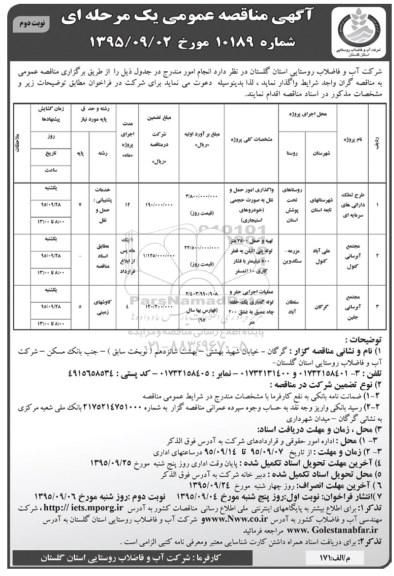 آگهی مناقصه عمومی یک مرحله ای
نوبت دوم
شماره ۱۰۱۸۹ مورخ ۱۳۹۵/۰۹/۰۲
شرکت آب و فاضلاب روستایی استان گلستان
شرکت آب و فاضلاب روستایی استان گلستان در نظر دارد انجام امور مندرج در جدول ذیل را از طریق برگزاری مناقصه عمومی
به مناقصه گران واجد شرایط واگذار نماید ، لذا بدینوسیله دعوت می نماید برای شرکت در فراخوان مطابق توضیحات زیر و
مشخصات مذکور در اسناد مناقصه اقدام نمایند.
ردیف
نام پروژه
محل اجرای پروژه
شهرستان
روستا
مشخصات کلی پروژه
مبلغ بر آورد اولیه «ریال»
مبلغ تضمین شرکت درمناقصه «ریال»
مدت اجرای پروژه «ماه»
رشته و حد اقل پایه مورد نیاز
رشته
پایه
زمان گشایش پیشنهادها
روز
تاریخ
ساعت
ملاحظات
۱
طرح تملک دارائی های سرمایه ای
شهرستانهای تابعه استان
روستاهای تحت پوشش استان
واگذاری امور حمل و نقل به صورت حجمی (خودروهای استیجاری)
۳/۸۰۰/۰۰۰/۰۰۰ (قیمت روز)
۱۹۰/۰۰۰/۰۰۰
۱۲
خدمات پشتیبانی : حمل و نقل
۷
یکشنبه
۹۵/۰۹/۲۸
۸:۰۰ تا ۱۳:۰۰
۲
مجتمع آبرسانی کتول
علی آباد کتول
مزرعه - سنگدوین
(قیمت روز)
۱/۱۲۵/۰۰۰/۰۰۰
مطابق اسناد مناقصه
یکشنبه
۹۵/۰۹/۲۸
۸:۰۰ تا ۱۳:۰۰
۳
مجتمع آبرسانی جلین
گرگان
سلطان آباد
عملیات اجرایی حفر و لوله گذاری یک حلقه چاه عمیق به عمق ۲۰۰ متر
(فهارس بها سال ۹۵)
۱۲۰/۲۰۰/۰۰۰
کاوشهای زمینی
۵
یکشنبه
۹۵/۰۹/۲۸
۸:۰۰ تا ۱۳:۰۰
ParsNamadData
۰۲۱-۸۸۳۴۹۶۷۰-۵
توضیحات :
۱) نام و نشانی مناقصه گزار : گرگان – خیابان شهید بهشتی – بهشت شانزدهم ( نوبخت سابق ) – جنب بانک مسکن – شرکت
آب و فاضلاب روستایی استان گلستان.
تلفن : ۳- ۰۱۷۳۲۱۵۸۴۰۱ و ۰۱۷۳۲۱۳۱۴۰۰ – نمابر : ۰۱۷۳۲۱۵۸۴۰۵ – کد پستی : ۴۹۱۵۶۵۸۵۳۴
۲) نوع تضمین شرکت در مناقصه :
۲-۱) ضمانت نامه بانکی به نفع کارفرما با مشخصات مندرج در شرایط عمومی مناقصه
۲-۲) رسید بانکی واریز وجه نقد به حساب وجوه سپرده عمرانی مناقصه گزار به شماره ۲۱۷۵۲۱۴۷۵۱۰۰۰ بانک ملی شعبه مرکزی
به نشانی گرگان – میدان شهرداری
۳) محل ، زمان و مهلت دریافت اسناد:
۳-۱) محل : اداره امور حقوقی و قراردادهای شرکت به آدرس فوق الذکر
۳-۲) زمان و مهلت : از تاریخ ۹۵/۰۹/۰۷ تا ۹۵/۰۹/۱۴ درساعتهای اداری
۴) آخرین مهلت تحویل اسناد تکمیل شده : پایان وقت اداری روز پنج شنبه مورخ ۱۳۹۵/۰۹/۲۵
۵) محل تحویل اسناد تکمیل شده : دبیر خانه شرکت به آدرس فوق الذکر
۶) آخرین مهلت انصراف: روز چهار شنبه مورخ ۱۳۹۵/۰۹/۲۴
۷) انتشار فراخوان: نوبت اول:روز پنج شنبه مورخ ۱۳۹۵/۰۹/۰۴ نوبت دوم :روز شنبه مورخ ۱۳۹۵/۰۹/۰۶
تذکر۱: برای اطلاع بیشتر به پایگاههای اینترنتی ملی اطلاع رسانی مناقصات کشور به آدرس http://iets.mporg.ir ، شرکت
مهندسی آب و فاضلاب کشور به آدرس www.Nww.co.ir و شرکت آب و فاضلاب روستایی استان گلستان به آدرس
www.Golestanabfar.ir مراجعه فرمائید
تذکر۲: برای دریافت اسناد همراه داشتن کارت شناسایی معتبر ومعرفی نامه کتبی الزامی است .
کارفرما : شرکت آب و فاضلاب روستایی استان گلستان
م الف:۱۷۱